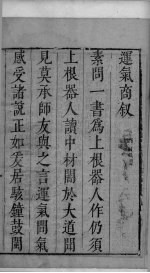 運氣商叙
素問一書為上根器人作仍須
上根器人讀中材關於大道聞
見莫承師友與之言運氣聞氣
感受諸說正如爰居駭鐘鼓閴